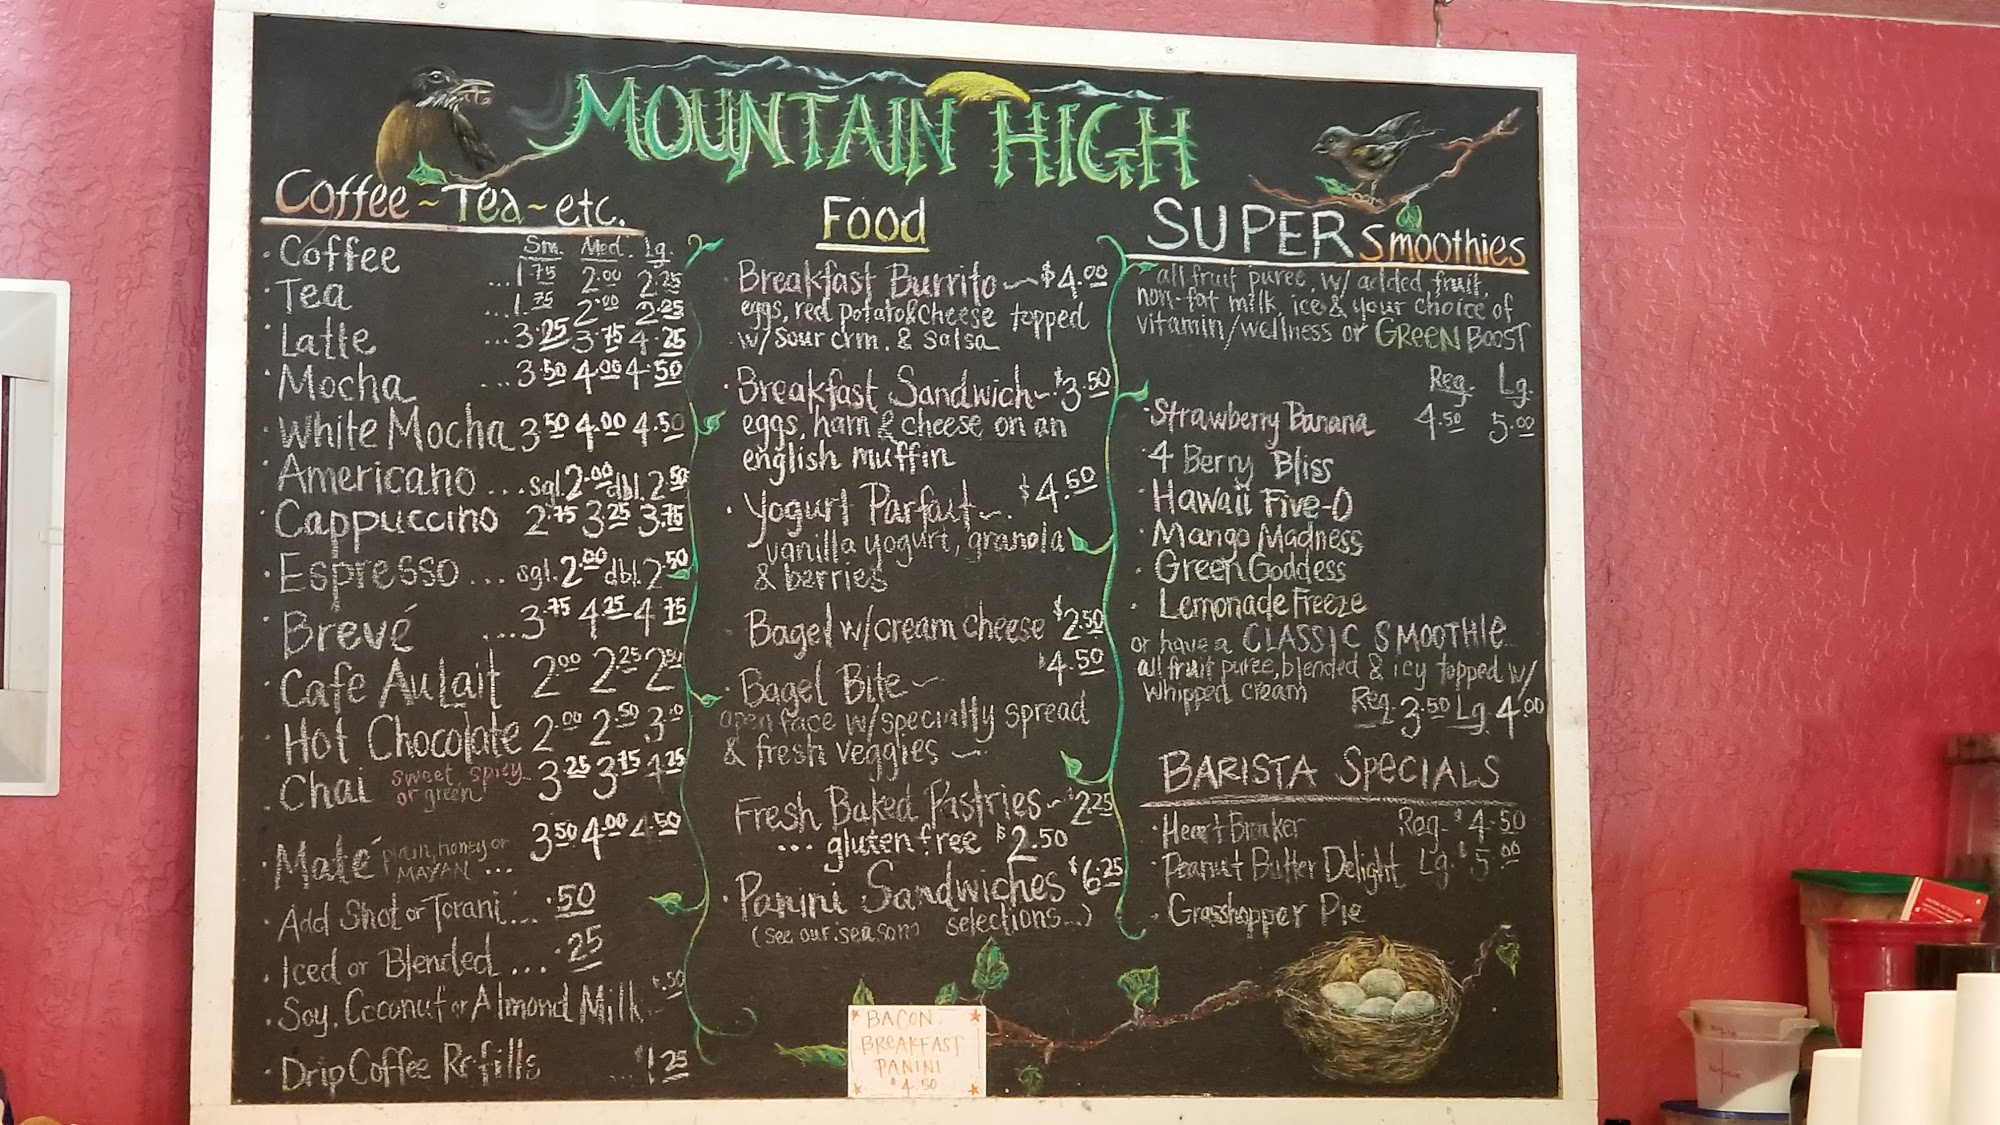 MOUNTAIN HIGH
Coffee ~ Tea ~ etc.
Sm. Med. Lg.
· Coffee ...1.75 2.00 2.25
· Tea ...1.75 2.00 2.25
· Latte ...3.25 3.75 4.25
· Mocha ...3.50 4.00 4.50
· White Mocha 3.50 4.00 4.50
· Americano ...sgl.2.00 dbl.2.50
· Cappuccino 2.75 3.25 3.75
· Espresso ...sgl.2.00 dbl.2.50
· Brevé ...3.75 4.25 4.75
· Cafe Au Lait 2.00 2.25 2.50
· Hot Chocolate 2.00 2.50 3.0
· Chai sweet, spicy or green 3.25 3.75 4.25
· Maté plain, honey or MAYAN ... 3.50 4.00 4.50
· Add Shot or Torani... .50
· Iced or Blended ... .25
· Soy, Coconut or Almond Milk .50
· Drip Coffee Refills ...$1.25
Food
· Breakfast Burrito ~ $4.00
eggs, red potato & cheese topped
w/ sour crm. & salsa
· Breakfast Sandwich ~ $3.50
eggs, ham & cheese on an
english muffin
· Yogurt Parfait ~ $4.50
vanilla yogurt, granola
& berries
Bagel w/cream cheese $2.50
· Bagel Bite ~ $4.50
open face w/specialty spread
& fresh veggies ~
Fresh Baked Pastries ~ $2.25
... gluten free $2.50
· Panini Sandwiches $6.25
(see our season selections...)
BACON
BREAKFAST
PANINI
$4.50
SUPER Smoothies
all fruit puree, w/ added fruit,
non-fat milk, ice & your choice of
vitamin/wellness or GREEN BOOST
Reg. Lg.
· Strawberry Banana 4.50 5.00
· 4 Berry Bliss
· Hawaii Five-O
· Mango Madness
· Green Goddess
· Lemonade Freeze
or have a CLASSIC SMOOTHIE...
all fruit puree, blended & icy topped w/
whipped cream Reg. 3.50 Lg. 4.00
BARISTA SPECIALS
· Heart Breaker Reg. $4.50
· Peanut Butter Delight Lg. $5.00
· Grasshopper Pie